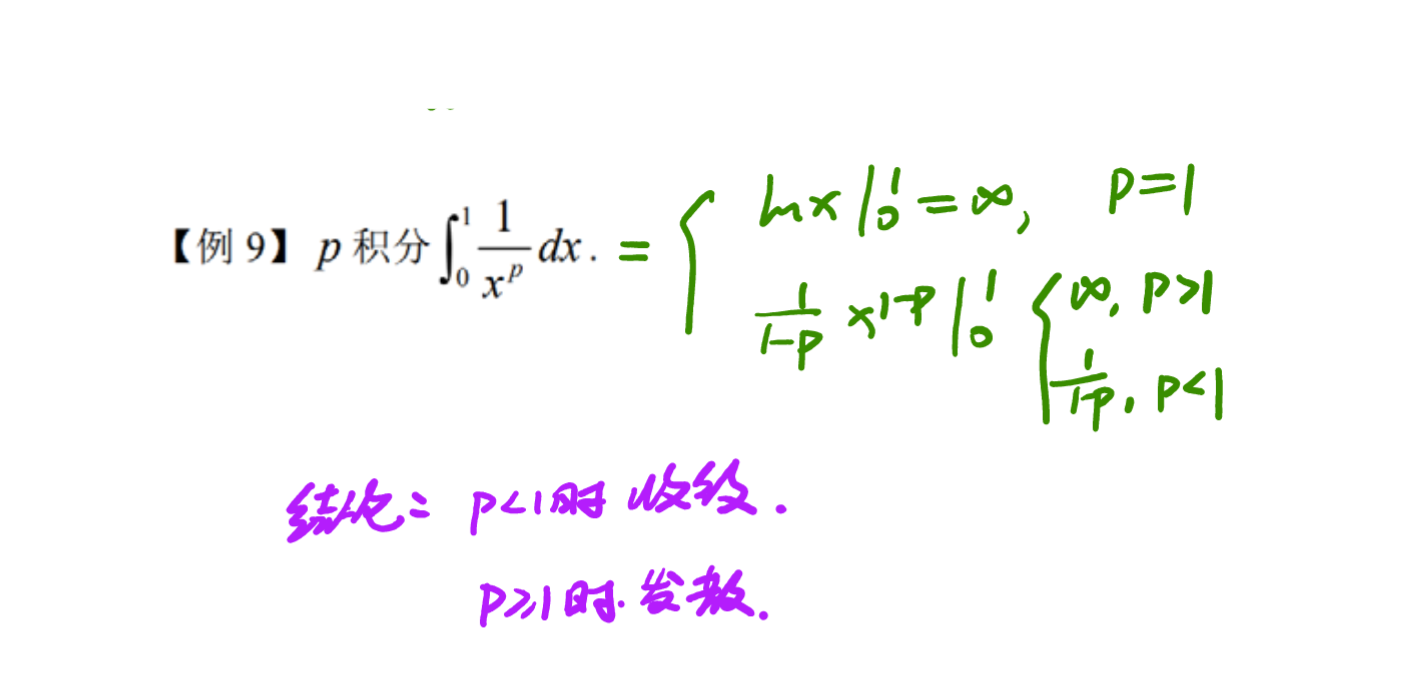 【例 9】 p 积分 ∫₀¹ 1/x^p dx. = { ln x |₀¹ = ∞, p=1
1/(1-p) x^(1-p) |₀¹ { ∞, p>1
1/(1-p), p<1
结论: p<1时 收敛.
p≥1时. 发散.